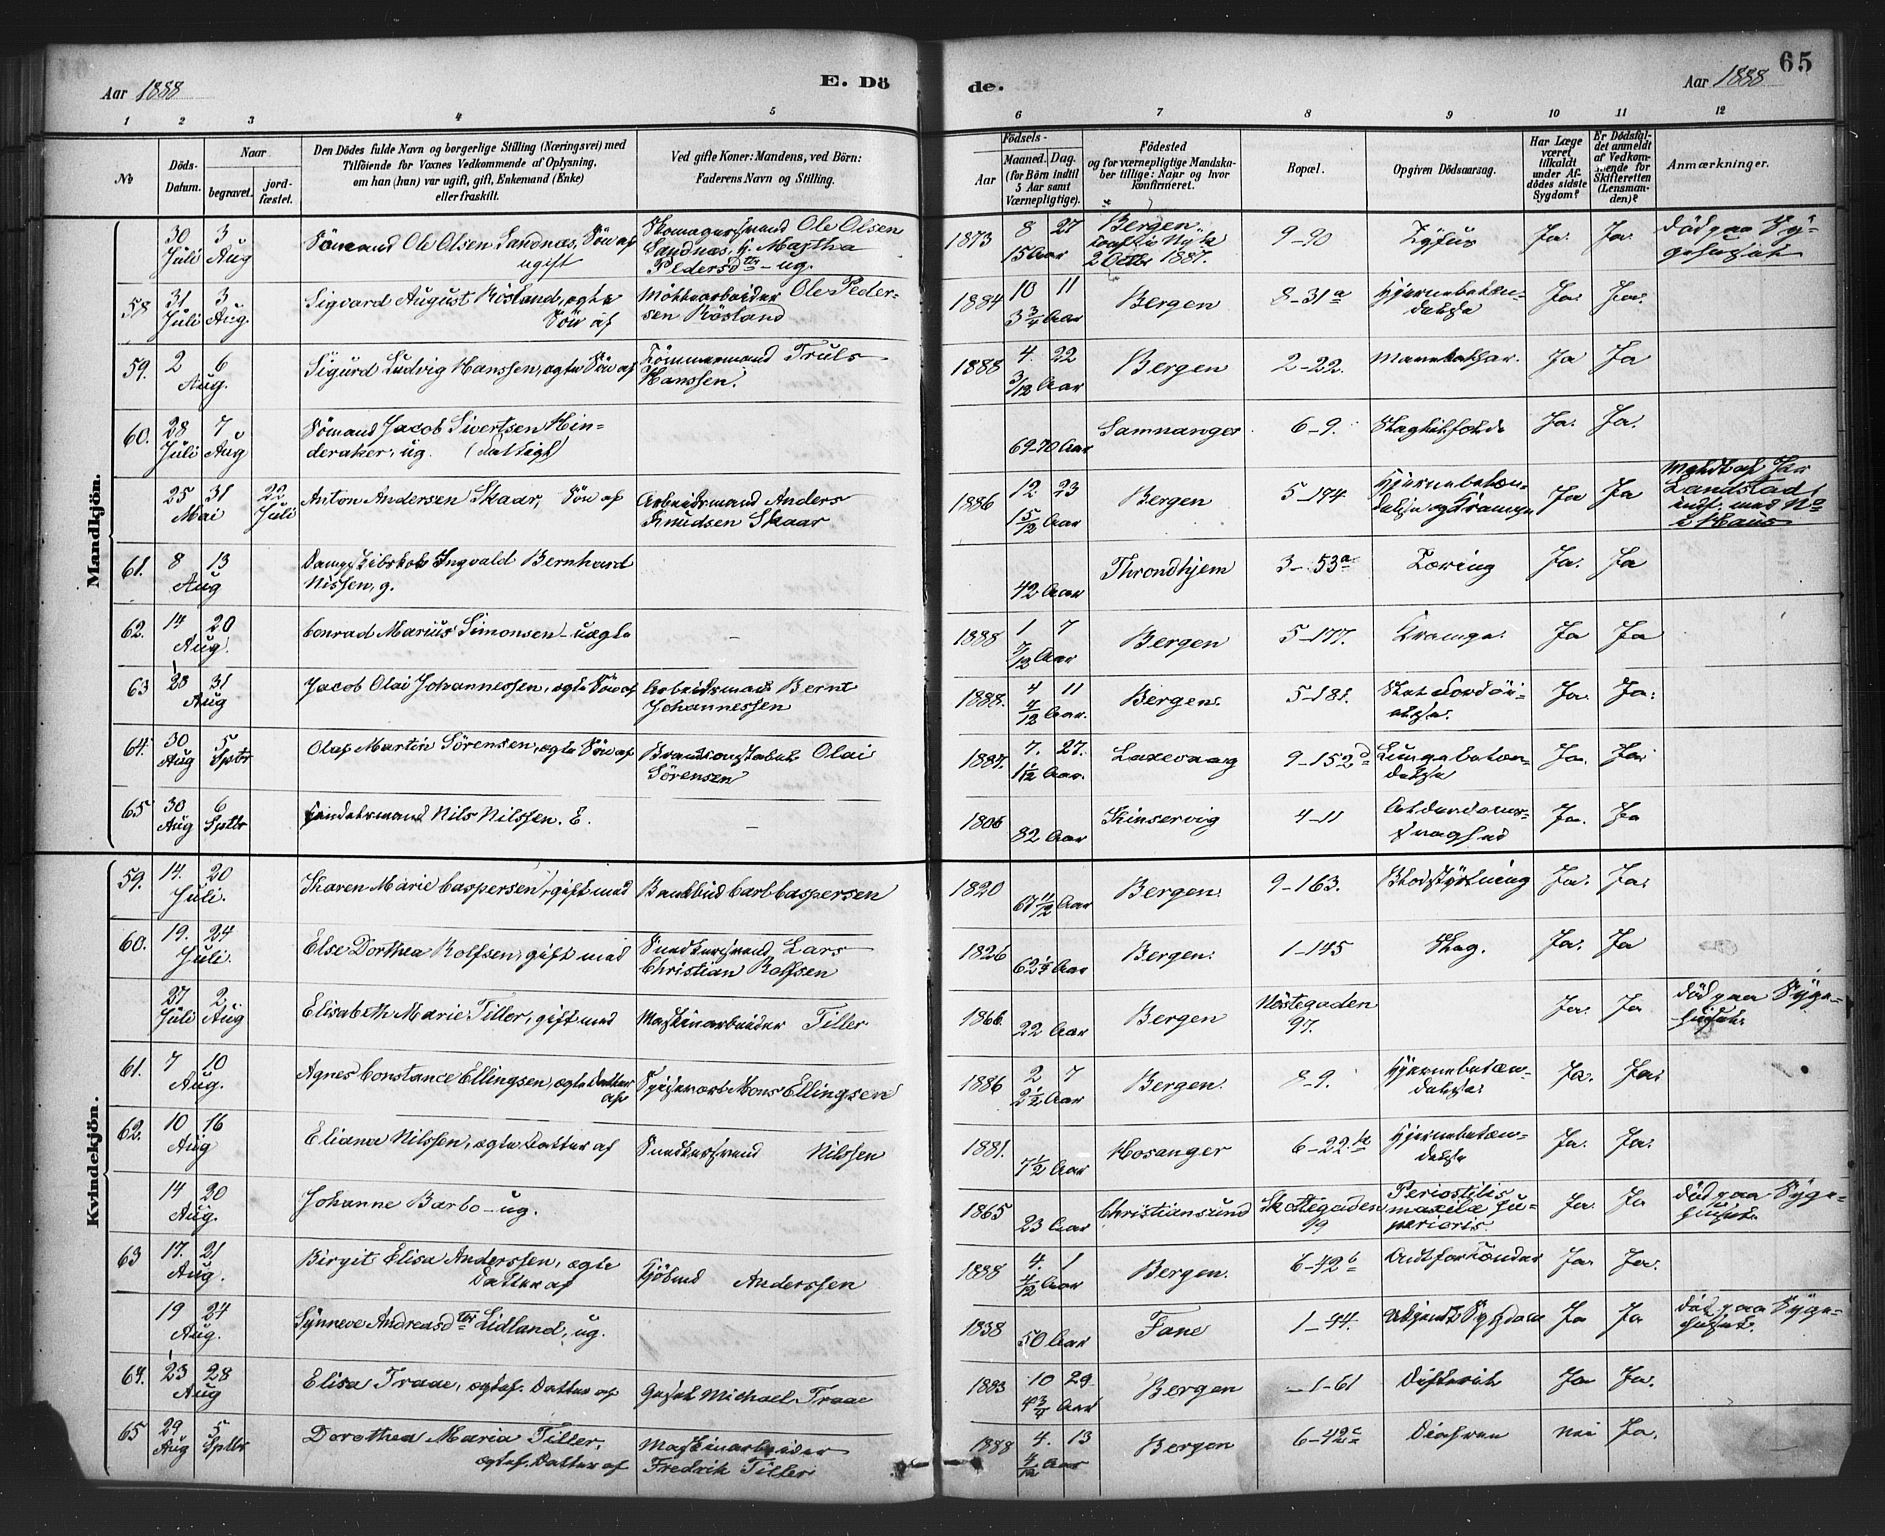 65
Aar 1888
E. Dö
de.
Aar 1888
1 2 3 4 5 6 7 8 9 10 11 12
No
Döds-Datum.
Naar
begravet.
jordfæstet.
Den Dödes fulde Navn og borgerlige Stilling (Næringsvei) med
Tilföiende for Voxnes Vedkommende af Oplysning,
om han (hun) var ugift, gift, Enkemand (Enke)
eller fraskilt.
Ved gifte Koner: Mandens, ved Börn:
Faderens Navn og Stilling.
Födsels-
Aar
Maaned. Dag.
(for Börn indtil
5 Aar samt
Værnepligtige).
Födested
og for værnepligtige Mandska-
ber tillige: Naar og hvor
konfirmeret.
Bopæl.
Opgiven Dödsaarsag.
Har Læge
været
tilkaldt
under Af-
dödes sidste
Sygdom?
Er Dödsfal-
det anmeldt
af Vedkom-
mende for
Skifteretten
(Lensman-
den)?
Anmærkninger.
Mandkjön.
30 Juli 3 Aug Sömand Ole Olsen Sandnæs, Sön af ugift Ole Olsen Sandnæs, Martha Pedersdtr - ug. 1873 8 27 15 Aar Bergen. 2 Octbr 1887. 9-90 Tyfus Ja. Ja. död paa Sygehuset
58 31 Juli 3 Aug. Sigvard August Rösland, ægte Sön af Möllearbeider Ole Pedersen Rösland 1884 10 11 3 3/4 Aar Bergen 8-31a Hjernebetændelse Ja. Ja.
59. 2 6 Aug. Sigurd Ludvig Hanssen, ægte Sön af Tömmermand Truls Hanssen. 1888 4. 22 3/12 Aar Bergen 2-22. Mavekathar. Ja Ja
60. 28 Juli 7 Aug Sömand Jacob Sivertsen Hinderaker, ug. (Fattigl) 69-70 Aar Samnanger 6-9. Ja. Ja.
25 31 Mai 22 Juli Anton Andersen Skaar, Sön af Arbeidsmand Anders Knudsen Skaar 1886 12. 23 1 5/12 Aar Bergen 5-194 Hjernebetændelse og Krampe Ja Ja Meldt af Landstad i Haus
61. 8 13 Aug Ingvald Bernhard Nissen, g. 42 Aar Throndhjem 3-53a Tæring Ja. Ja
62. 14 20 Aug. Conrad Marius Simonsen - uægte - 1888 1 7 7/12 Aar Bergen 5-177. Krampe. Ja Ja
63 28 31 Aug Jacob Olai Johannessen, ægte Sön af Arbeidsmand Bernt Johannessen 1888. 4 11 4/12 Aar. Bergen. 5-181. Ja. Ja.
64. 30 Aug 5 Sptbr Olaf Martin Sörensen, ægte Sön af Brandconstabel Olai Sörensen 1887. 7. 27. 1 1/12 Aar. Laxevaag 9-152d Lungebetændelse Ja. Ja.
65 30 Aug 6 Sptbr Nils Nilssen. E. - 1806 82 Aar Kinservig 4-11 Alderdomssvaghed Ja. Ja
Kvindekjön.
59. 14. 20 Juli. Karen Marie Caspersen, gift med Bankbud Carl Caspersen 1820 67 11/12 Aar Bergen. 9-163. Blodstyrtning Ja. Ja.
60. 19. 24 Juli. Else Dorthea Rolfsen, gift med Snedkersvend Lars Christian Rolfsen 1826 62 1/4 Aar Bergen. 1-145 Slag. Ja. Ja
27 Juli 2 Aug Elisabeth Marie Tiller, gift med Maskinarbeider Tiller 1866. 22 Aar Bergen Nöstegaden 97. Ja. Ja död paa Sygehuset.
61. 7 10 Aug. Agnes Constance Ellingsen, ægte Datter af Mons Ellingsen 1886 2 7 2 1/2 Aar Bergen. 8-9. Hjernebetændelse. Ja. Ja.
62. 10 16 Aug Eliana Nilssen, ægte Datter af Snedkersvend Nilssen 1881. 7 1/2 Aar Hosanger 6-22 Hjernebetændelse Ja. Ja.
14 20 Aug. Johanne Barbo - ug. 1865 23 Aar Christiansund Skottegaden 19 Periostitis maxilæ superioris. Ja. Ja död paa Sygehuset.
63 17. 21 Aug. Birgit Elisa Anderssen, ægte Datter af Anderssen 1888 4. 1 4/12 Aar Bergen. 6-42b Ja. Ja.
19 24 Aug. Synneve Andreasdtr Lidland, ug. 1838 50 Aar Fane 1-44. Ja Ja död paa Sygehuset.
64. 23 28 Aug Elisa Traae, ægtef. Datter af Michael Traae 1883 10 29 4 3/4 Aar Bergen 1-61 Difterit Ja Ja.
65 29 Aug 5 Sptbr Dorothea Maria Tiller, ægtef. Datter af Maskinarbeider Fredrik Tiller 1888 4. 13 4/12 Aar Bergen 6-42c Diarree nei Ja.